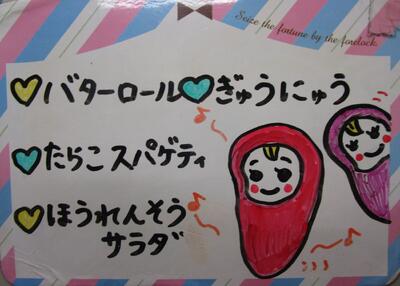 Seize the fortune by the forelock.
バターロール ぎゅうにゅう
たらこスパゲティ
ほうれんそう
サラダ